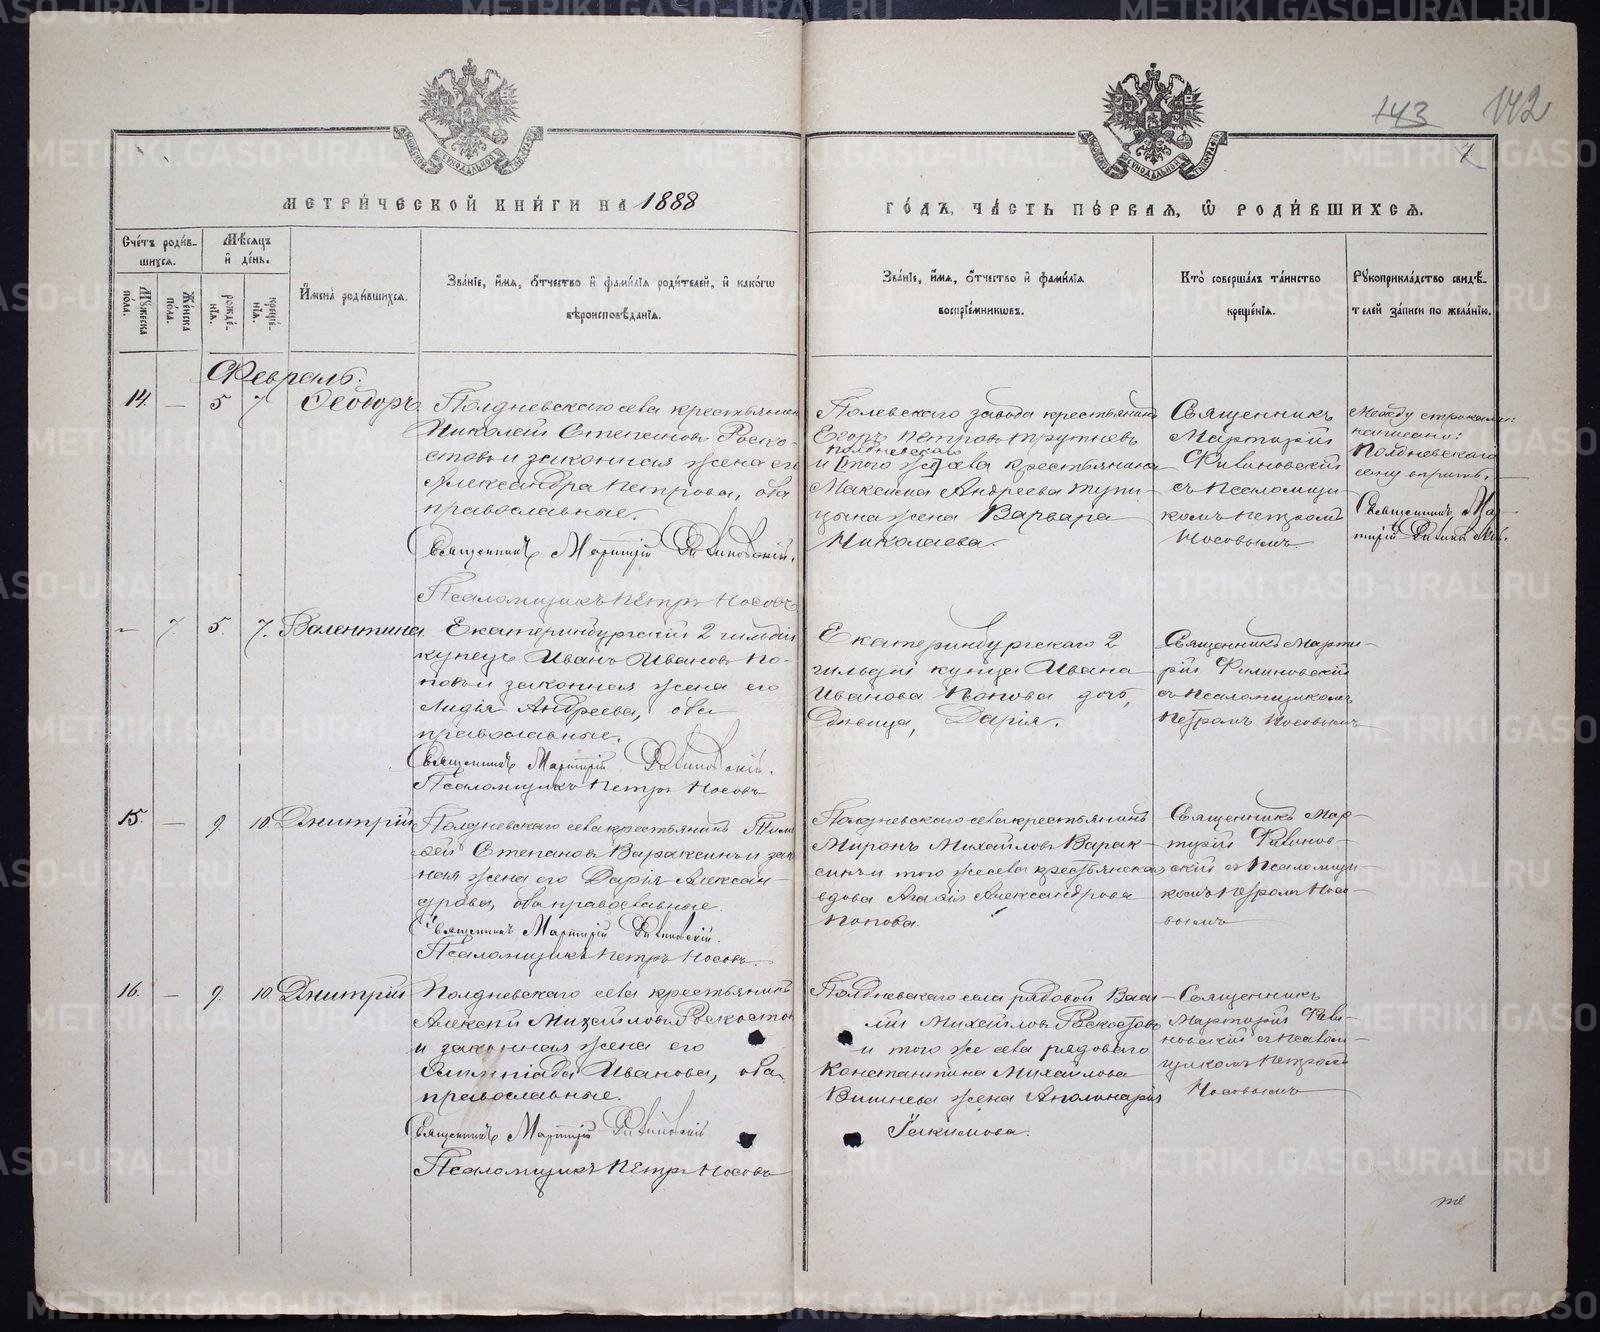 143 142
7
МЕТРИ́ЧЕСКОЙ КНИ́ГИ НА 1888
ГО́ДЪ, ЧА́СТЬ ПЕ́РВАЯ, Ѡ РОДИ́ВШИХСЯ.
Сче́тъ роди́вшихся.
Мѣ́сяцъ и де́нь.
Му́жеска по́ла.
Же́нска по́ла.
рожде́нія.
креще́нія.
Имена̀ роди́вшихся.
Зва́ніе, и́мя, о́тчество и фами́лія роди́телей, и како́гѡ
вѣроисповѣ́данія.
Зва́ніе, и́мя, о́тчество и фами́лія
воспріе́мниковъ.
Кто̀ соверша́лъ та́инство
креще́нія.
Рукоприкла́дство свидѣ́-
телей за́писи по жела́нію.
Февраль.
14. — 5 7 Ѳеодоръ.
Полдневскаго села крестьянинъ
Николай Степановъ Роско-
стовъ и законная жена его
Александра Петрова, оба
православные.
Священникъ Мартирій Фивиновскій.
Псаломщикъ Петръ Носовъ
Полевскаго завода крестьянинъ
Егоръ Петровъ Трутневъ
Полдневскаго
и [того же] села крестьянина
Максима Андреева Тупи-
цына жена Варвара
Николаева.
Священникъ
Мартирій
Фивиновскій
съ Псаломщи-
комъ Петромъ
Носовымъ.
Между строками
написано:
Полдневскаго
Священникъ Мар-
тирій Фивиновскій.
— 7. 5. 7. Валентина.
Екатеринбургскій 2 гильдіи
купецъ Иванъ Ивановъ По-
повъ и законная жена его
Лидія Андреева, оба
православные.
Священникъ Мартирій Фивиновскій.
Псаломщикъ Петръ Носовъ
Екатеринбургскаго 2
гильдіи купца Ивана
Иванова Попова дочь,
Дѣвица, Дарія.
Священникъ Марти-
рій Фивиновскій
съ Псаломщикомъ
Петромъ Носовымъ
15. — 9. 10 Дмитрій
Полдневскаго села крестьянинъ
Степановъ Вараксинъ и зак
ная жена его Дарія Алексан-
дрова, оба православные.
Священникъ Мартирій Фивиновскій.
Псаломщикъ Петръ Носовъ.
Полдневскаго села крестьянинъ
Миронъ Михайловъ Варак-
синъ и того же села крестьянская
вдова Агафія Александрова
Попова.
Священникъ Мар-
тирій Фивинов-
скій съ Псаломщи-
комъ Петромъ Носо-
вымъ
16. — 9. 10 Дмитрій
Полдневскаго села крестьянинъ
Алексѣй Михайловъ Роскостов
и законная жена его
Олимпіада Иванова, оба
православные.
Священникъ Мартирій Фивиновскій
Псаломщикъ Петръ Носовъ
Полдневскаго села рядовой Васи-
лій Михайловъ Роскостовъ
и того же села рядоваго
Константина Михайлова
Вишнева жена Аполинарія
Іакимова.
Священникъ
Мартирій Фиви-
новскій съ Псалом-
щикомъ Петромъ
Носовымъ
METRIKI.GASO-URAL.RU